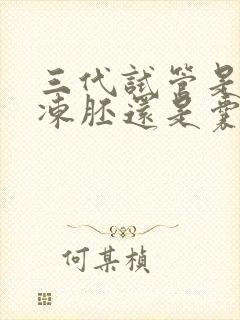 三代試管是
凍胚還是囊
何某楨